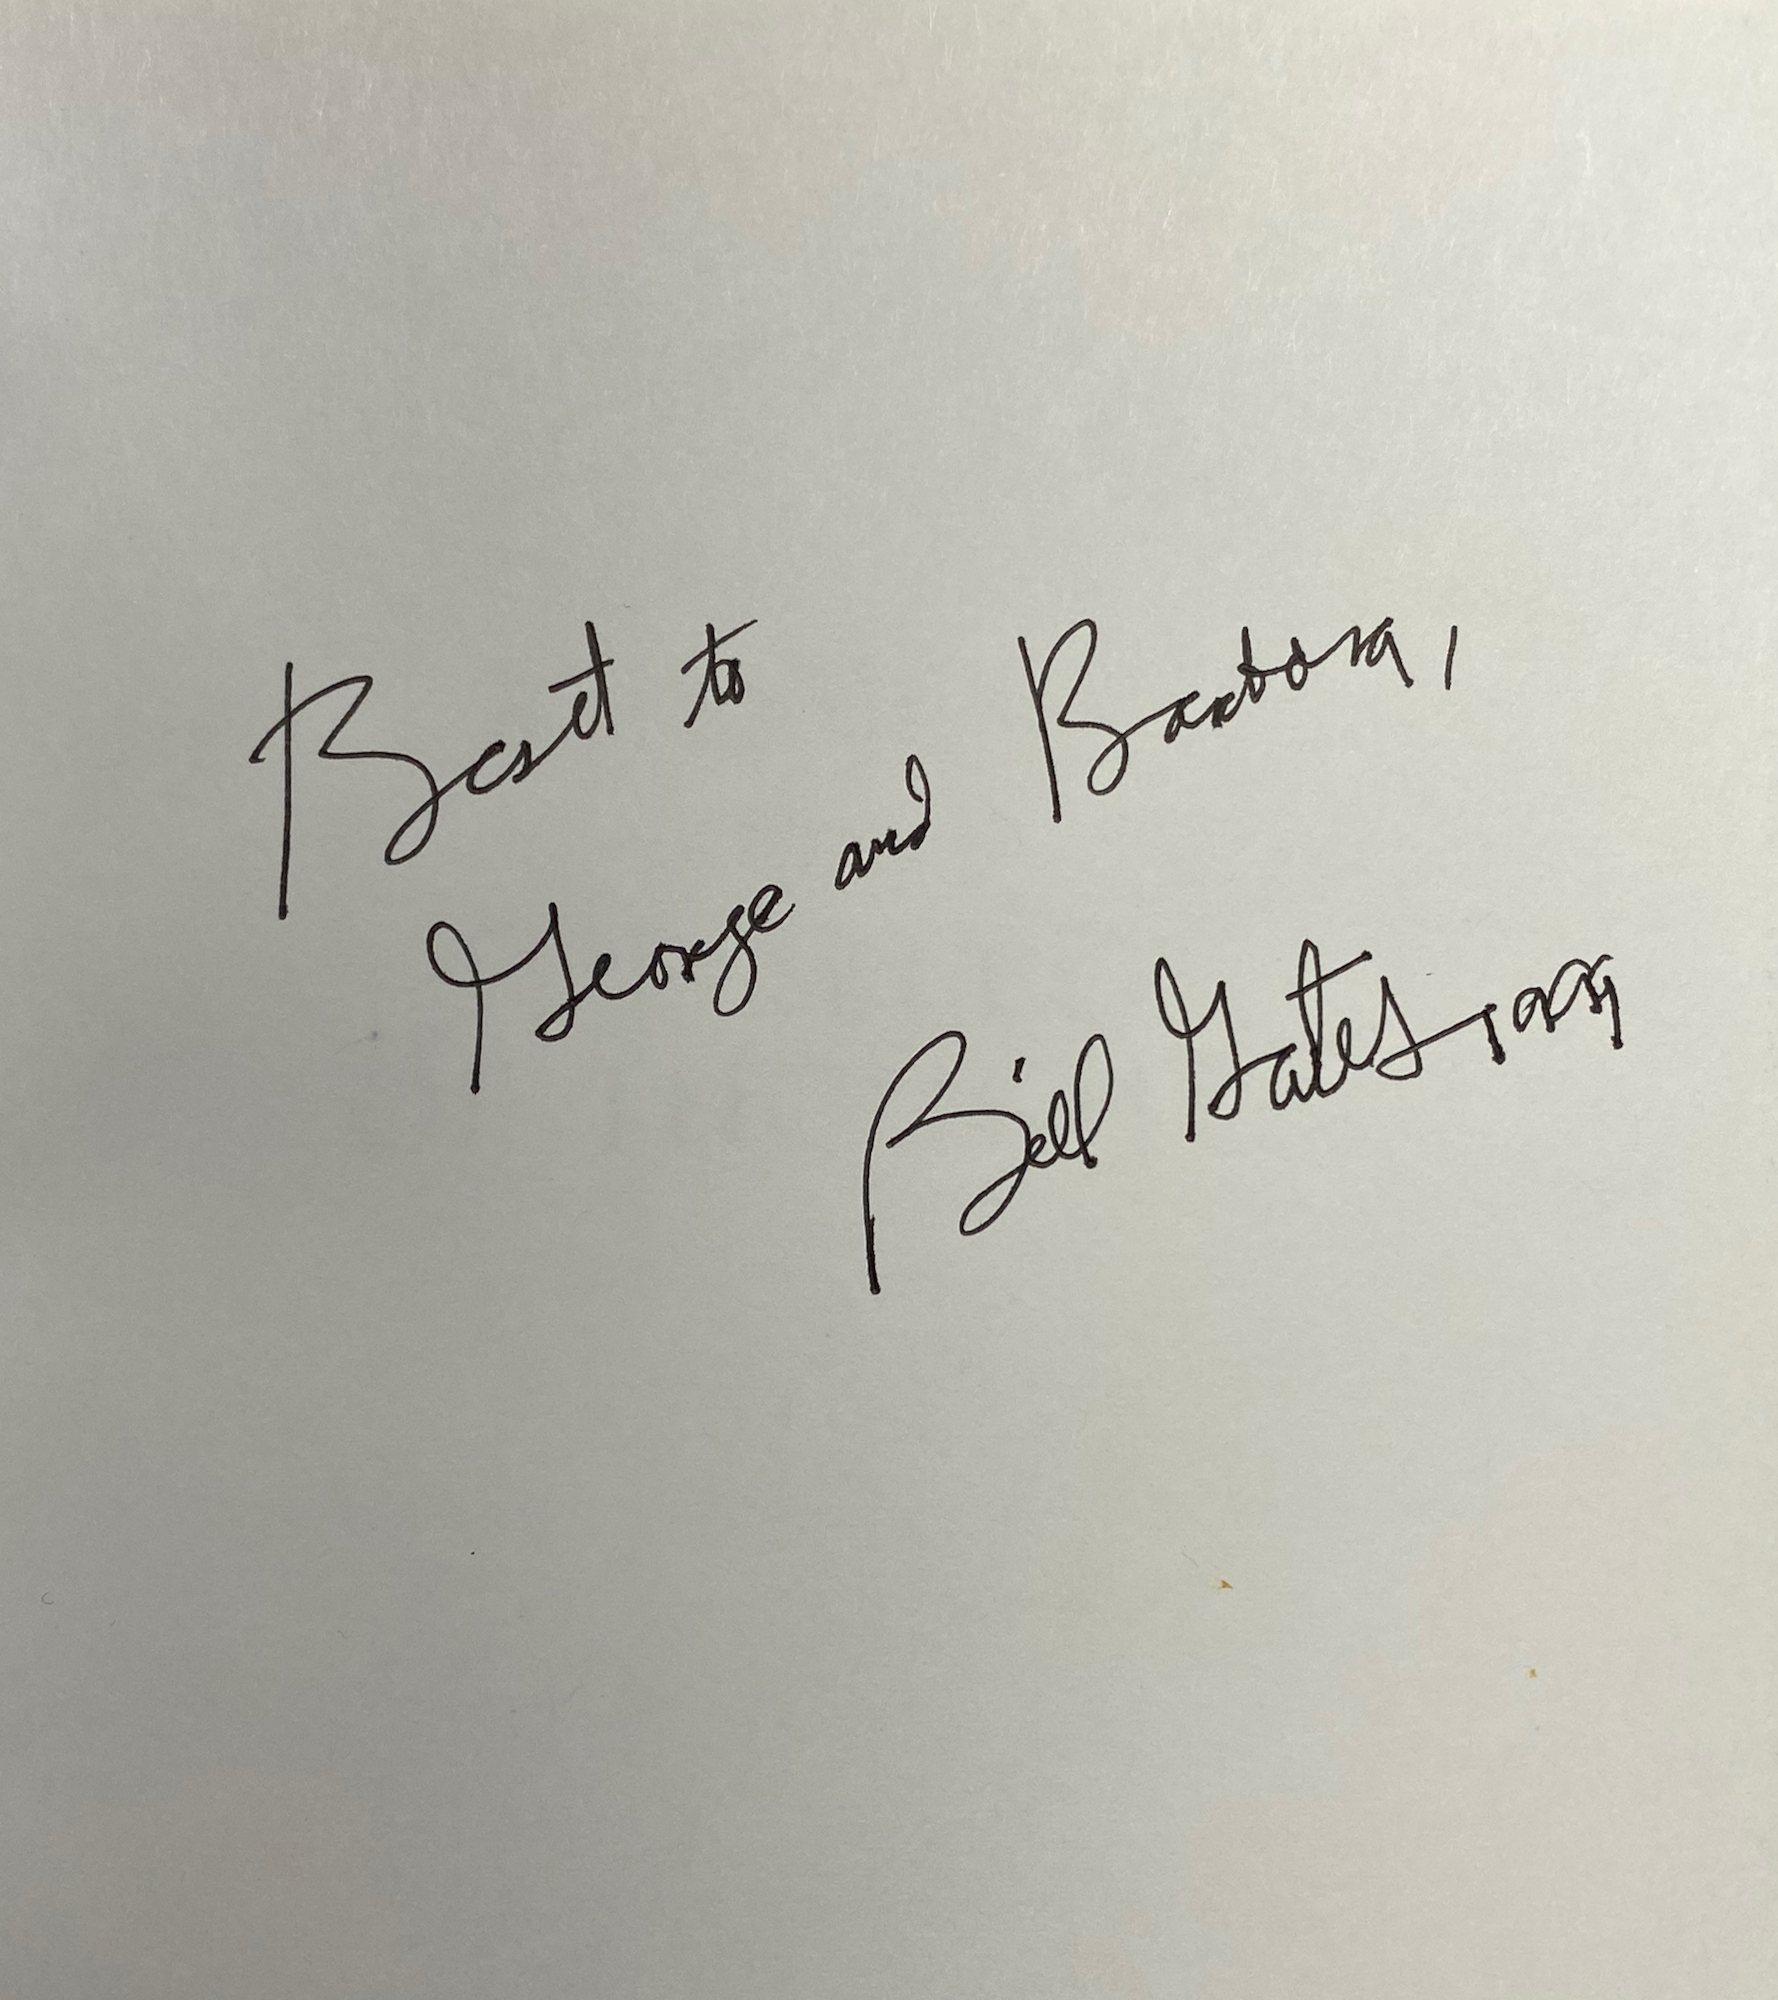 Best to
George and Barbara,
Bill Gates